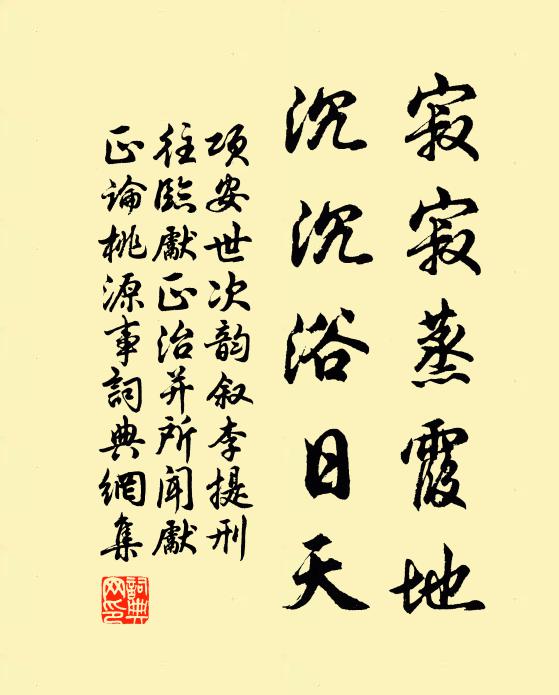 寂寂蒸霞地
沉沉浴日天
项安世次韵叙李提刑
往临獻正治并所闻獻
正论桃源事詞典網集
詞典网印